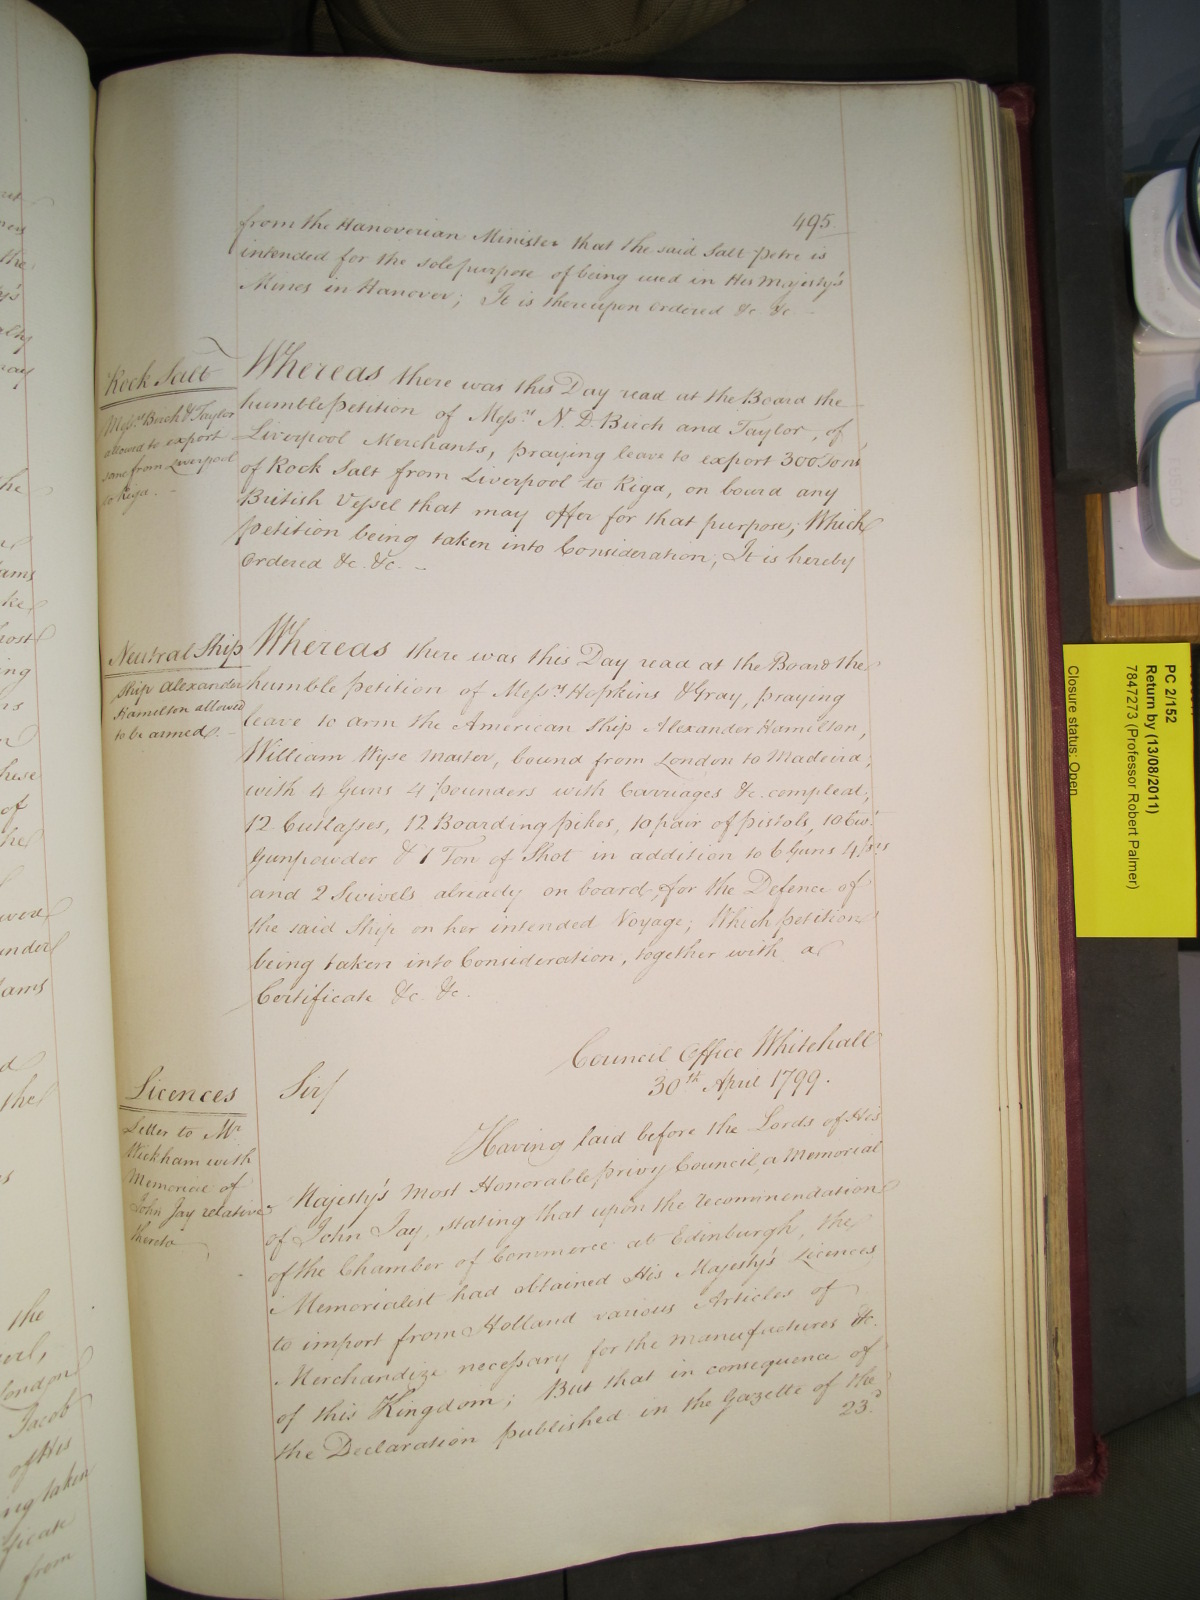 495.
from the Hanoverian Minister that the said Salt petre is
intended for the sole purpose of being used in His Majesty's
Mines in Hanover; It is thereupon ordered &c. &c. -
Rock Salt
Mess.rs Birch & Taylor
allowed to export
same from Liverpool
to Riga. -
Whereas there was this Day read at the Board the
humble petition of Mess.rs N. D. Birch and Taylor, of
Liverpool Merchants, praying leave to export 300 Tons
of Rock Salt from Liverpool to Riga, on board any
British Vessel that may offer for that purpose; Which
petition being taken into Consideration; It is hereby
ordered &c. &c. -
Neutral Ship
Ship Alexander
Hamilton allowed
to be armed. -
Whereas there was this Day read at the Board the
humble petition of Mess.rs Hopkins & Gray, praying
leave to arm the American Ship Alexander Hamilton,
William Wyse Master, bound from London to Madeira,
with 4 Guns 4 pounders with Carriages &c. compleat,
12 Cutlasses, 12 Boarding pikes, 10 pair of pistols, 10 Cwt.
Gunpowder & 1 Ton of Shot in addition to 6 Guns 4 prs
and 2 Swivels already on board, for the Defence of
the said Ship on her intended Voyage; Which petition
being taken into Consideration, together with a
Certificate &c. &c.
Council Office Whitehall
30th April 1799.
Licences
Letter to Mr
Wickham with
Memorial of
John Jay relative
thereto
Sir/
Having laid before the Lords of His
Majesty's most Honorable privy Council, a Memorial
of John Jay, stating that upon the recommendation
of the Chamber of Commerce at Edinburgh, the
Memorialist had obtained His Majesty's Licences
to import from Holland various Articles of
Merchandize necessary for the manufactures &c.
of this Kingdom; But that in consequence of
the Declaration published in the Gazette of the
23d.
PC 2/152
Return by (13/08/2011)
7847273 (Professor Robert Palmer)
Closure status: Open